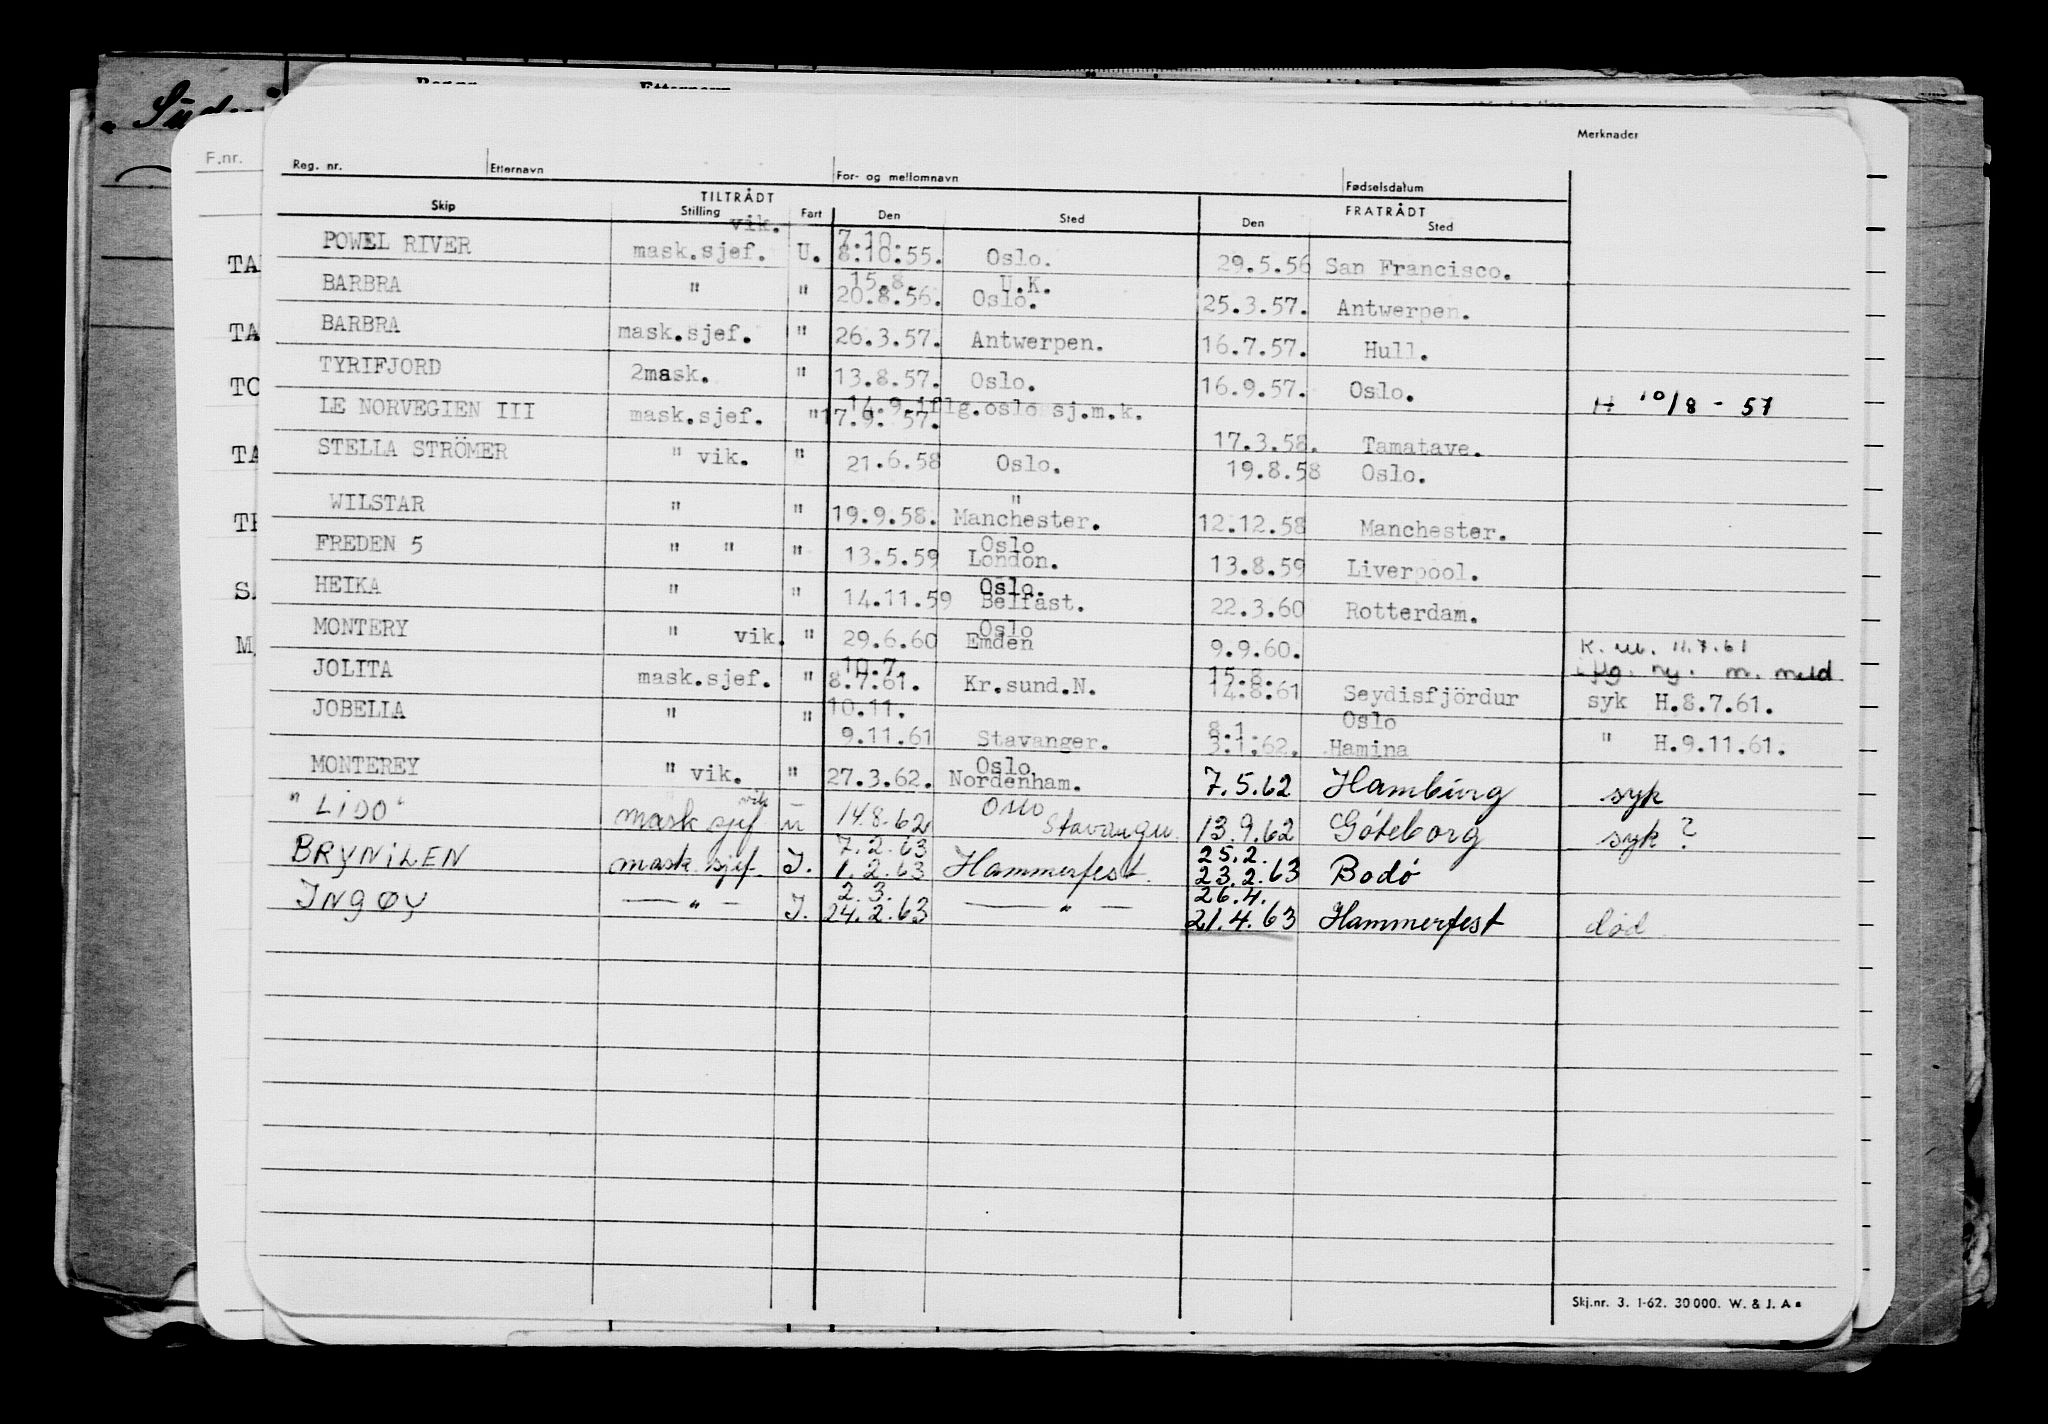 Merknader
F.nr.
Reg. nr. Etternavn For- og mellomnavn Fødselsdatum
TILTRÅDT FRATRÅDT
Skip Stilling Fart Den Sted Den Sted
vik. 7.10.
POWEL RIVER mask.sjef. U. 8.10.55. Oslo. 29.5.56 San Francisco.
15.8. U.K.
BARBRA " " 20.8.56. Oslo. 25.3.57. Antwerpen.
BARBRA mask.sjef. " 26.3.57. Antwerpen. 16.7.57. Hull.
TYRIFJORD 2mask. " 13.8.57. Oslo. 16.9.57. Oslo. H 10/8 - 57
14.9 iflg.oslo sj.m.k.
LE NORVEGIEN III mask.sjef. " 17.9.57. 17.3.58. Tamatave.
STELLA STRÖMER " vik. " 21.6.58 Oslo. 19.8.58 Oslo.
"
WILSTAR " " 19.9.58. Manchester. 12.12.58 Manchester.
Oslo
FREDEN 5 " " " 13.5.59 London. 13.8.59 Liverpool.
Oslo.
HEIKA " " 14.11.59 Belfast. 22.3.60 Rotterdam.
Oslo
MONTERY " vik. " 29.6.60 Emden 9.9.60. K. m. 11.7.61
10.7. 15.8. iflg. ny. m. meld
JOLITA mask.sjef. " 8.7.61. Kr.sund.N. 14.8.61 Seydisfjördur syk H.8.7.61.
JOBELLA " " 10.11. 8.1. Oslo
9.11.61 Stavanger. 3.1.62. Hamina " H.9.11.61.
Oslo
MONTEREY " vik. " 27.3.62. Nordenham. 7.5.62 Hamburg syk
vik Oslo
"LIDO" mask sjef u 14.8.62 Stavanger. 13.9.62 Göteborg syk ?
7.2.63 25.2.
BRYNILEN mask. sjef. I. 1.2.63 Hammerfest. 23.2.63 Bodø
2.3. 26.4.
INGØY — " — I. 24.2.63 — " — 21.4.63 Hammerfest død
Skj.nr. 3. 1-62. 30 000. W. & J. A s